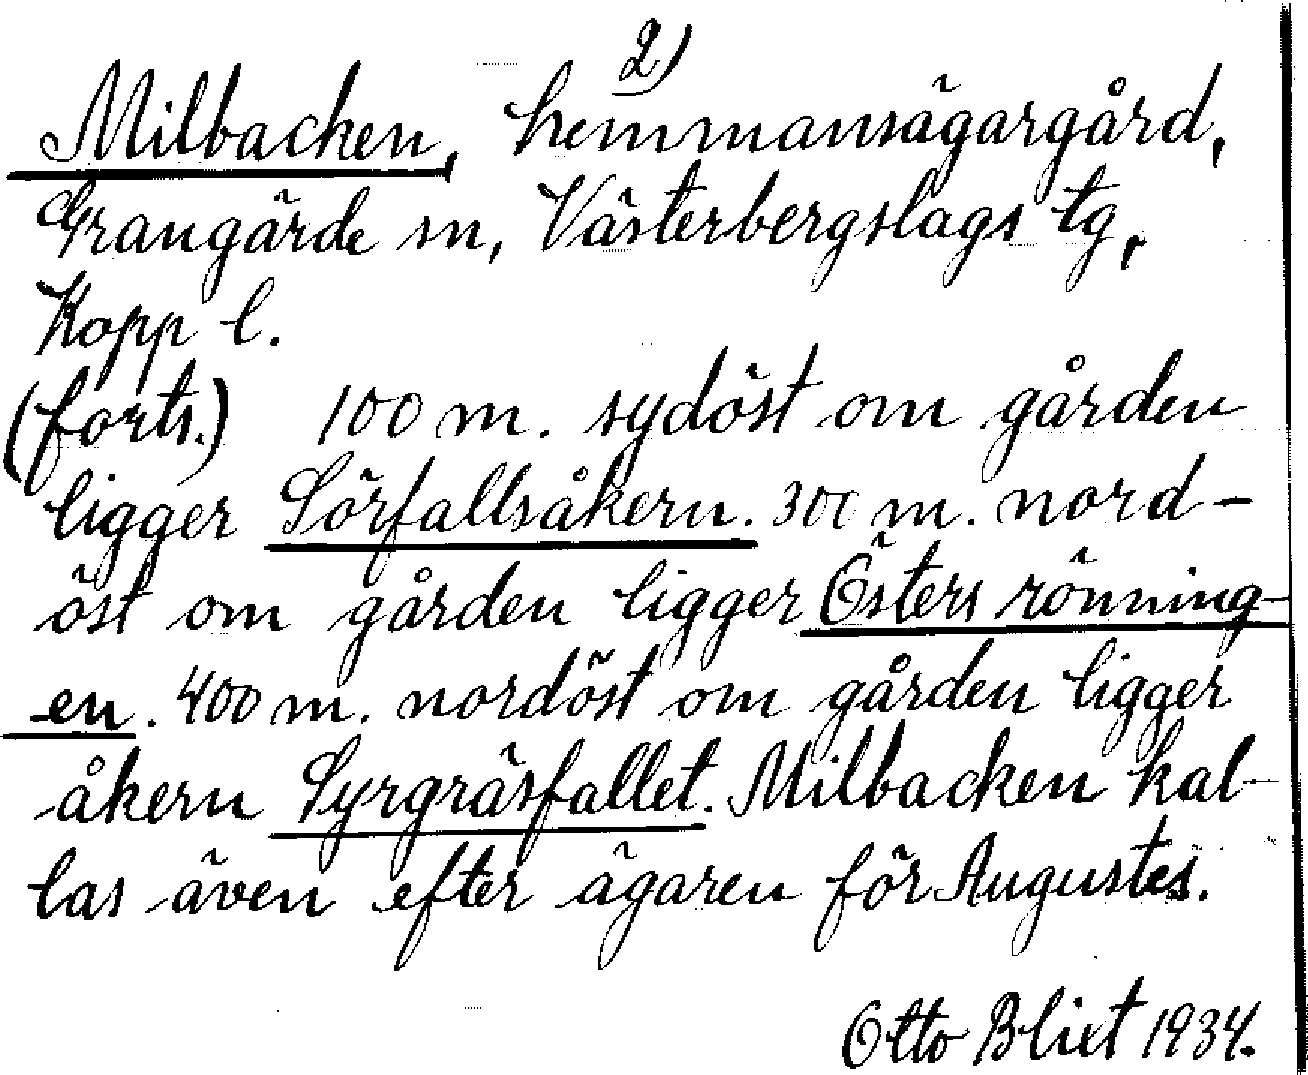 2)
Milbacken, hemmansägargård,
Grangärde sn, Västerbergslags tg,
Kopp l.
(forts.) 100 m. sydöst om gården
ligger Sörfallsåkern. 300 m. nord-
öst om gården ligger Östers rönning-
en. 400 m. nordöst om gården ligger
åkern Syrgräsfallet. Milbacken kal-
las även efter ägaren för Augustes.
Otto Blixt 1934.